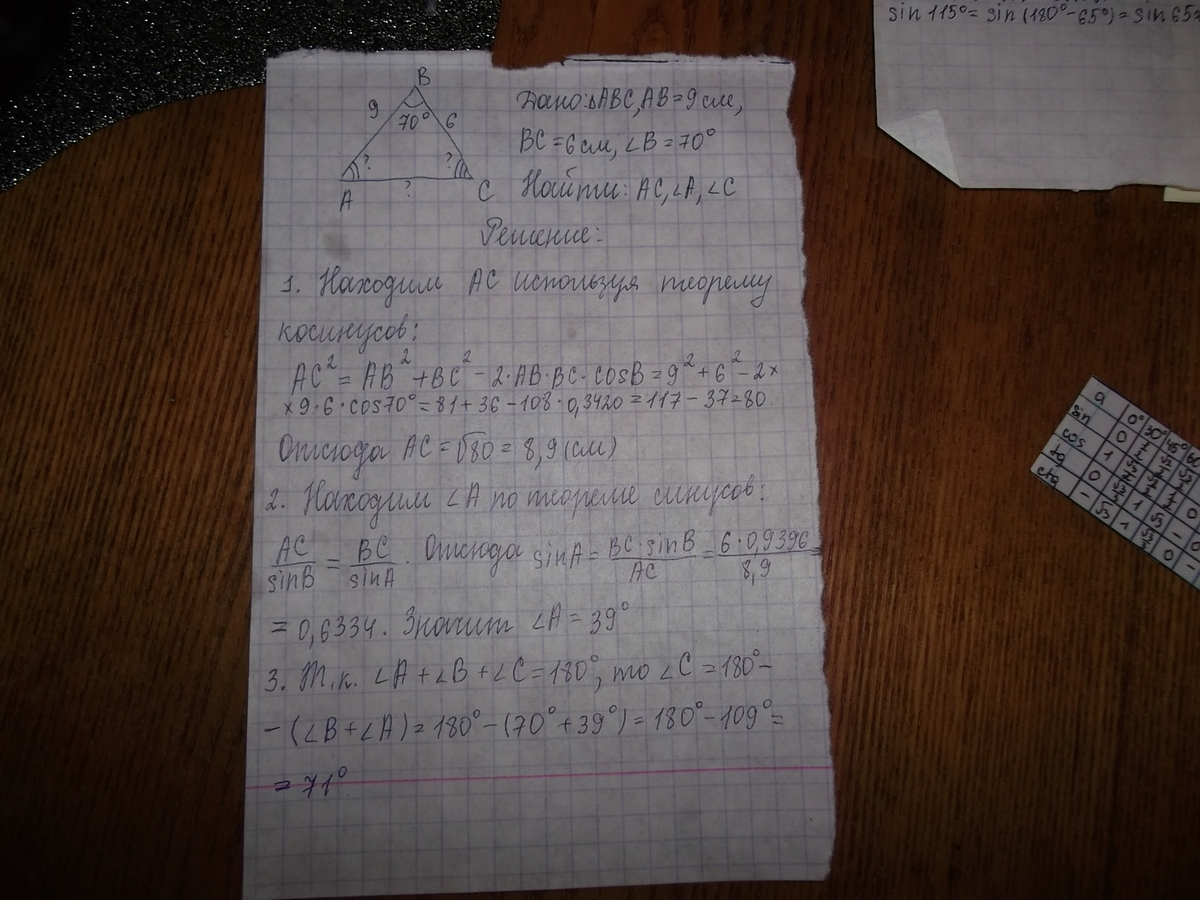 B
9
70°
6
?
?
A
?
C
Дано: ΔABC, AB=9см,
BC=6см, ∠B=70°
Найти: AC, ∠A, ∠C
Решение:
1. Находим AC используя теорему
косинусов:
AC² = AB² + BC² - 2·AB·BC·cosB = 9² + 6² - 2×
×9·6·cos70° = 81 + 36 - 108·0,3420 = 117 - 37 = 80.
Отсюда AC = √80 = 8,9 (см)
2. Находим ∠A по теореме синусов:
AC/sinB = BC/sinA. Отсюда sinA = BC·sinB/AC = 6·0,9396/8,9 =
= 0,6334. Значит ∠A = 39°
3. Т.к. ∠A + ∠B + ∠C = 180°, то ∠C = 180° -
- (∠B + ∠A) = 180° - (70° + 39°) = 180° - 109° =
= 71°
sin115° = sin(180° - 65°) = sin65
a 0° 30° 45°
sin 0
cos 1
tg 0
ctg -